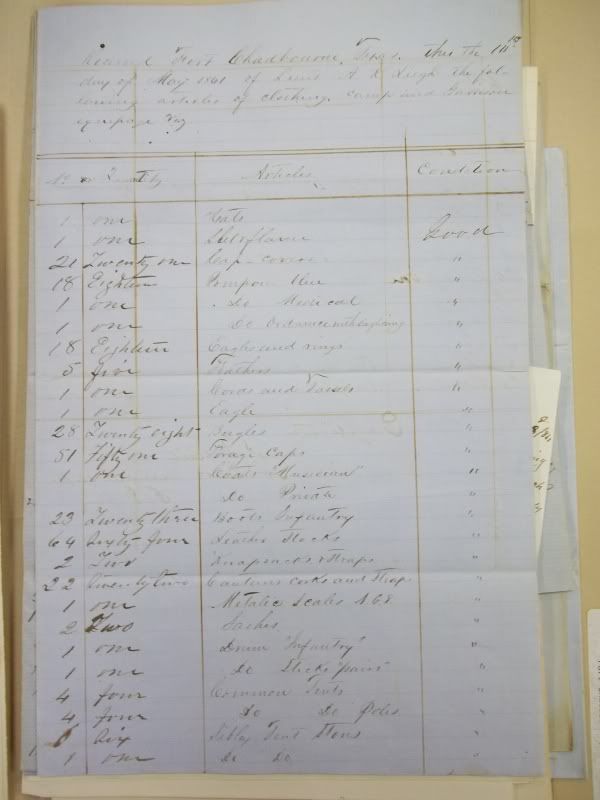 Received Fort Chadbourne, Texas. this the 11th
day of May 1861 of Lieut A D Leigh the fol-
lowing articles of clothing, camp and Garrison
equipage Viz
No or Quantity Articles Condition
1 one Hats Good
1 one
21 Twenty one Cap-covers "
18 Eighteen Pompon blue "
1 one Do Medical "
1 one Do Ordnance "
18 Eighteen Eagles and rings "
5 five Feathers "
1 one Cords and Tassels "
1 one Eagle "
28 Twenty eight Bugles "
51 Fifty one Forage Caps "
1 one Coats "Musician" "
Do Private "
23 Twenty three Boots Infantry "
64 Sixty four Leather Stocks "
2 Two Knapsacks & Straps "
22 Twenty two Canteens corks and straps "
1 one Metalic Scales "
2 Two Sashes "
1 one Drum "Infantry" "
1 one Do Sticks "pairs" "
4 four Common Tents "
4 four Do Do Poles "
6 Six Sibley Tent "
1 one Do Do "